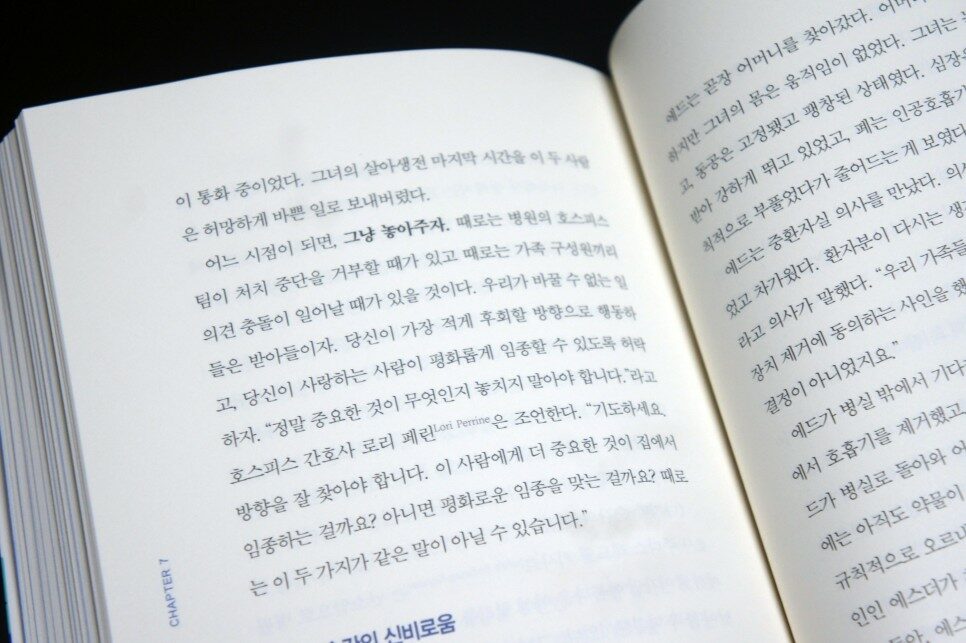 이 통화 중이었다. 그녀의 살아생전 마지막 시간을 이 두 사람
은 허망하게 바쁜 일로 보내버렸다.
어느 시점이 되면, 그냥 놓아주자. 때로는 병원의 호스피스
팀이 처치 중단을 거부할 때가 있고 때로는 가족 구성원끼리
의견 충돌이 일어날 때가 있을 것이다. 우리가 바꿀 수 없는 일
들은 받아들이자. 당신이 가장 적게 후회할 방향으로 행동하
고, 당신이 사랑하는 사람이 평화롭게 임종할 수 있도록 허락
하자. “정말 중요한 것이 무엇인지 놓치지 말아야 합니다.”라고
호스피스 간호사 로리 페린Lori Perrine은 조언한다. “기도하세요.
방향을 잘 찾아야 합니다. 이 사람에게 더 중요한 것이 집에서
임종하는 걸까요? 아니면 평화로운 임종을 맞는 걸까요? 때로
는 이 두 가지가 같은 말이 아닐 수 있습니다.”
신비로움
CHAPTER 7
에드는 곧장 어머니를 찾아갔다.
하지만 그녀의 몸은 움직임이 없었다. 그녀는
고, 동공은 고정됐고 팽창된 상태였다.
받아 강하게 뛰고 있었고, 폐는 인공호흡기
칙적으로 부풀었다가 줄어드는 게 보였다
에드는 중환자실 의사를 만났다.
었고 차가웠다. 환자분이 다시는
라고 의사가 말했다. “우리 가족들
장치 제거에 동의하는 사인을 했
결정이 아니었지요.”
에드가 병실 밖에서
에서 호흡기를 제거했고
드가 병실로 돌아와
에는 아직도 약물이
규칙적으로
인인 에스더가